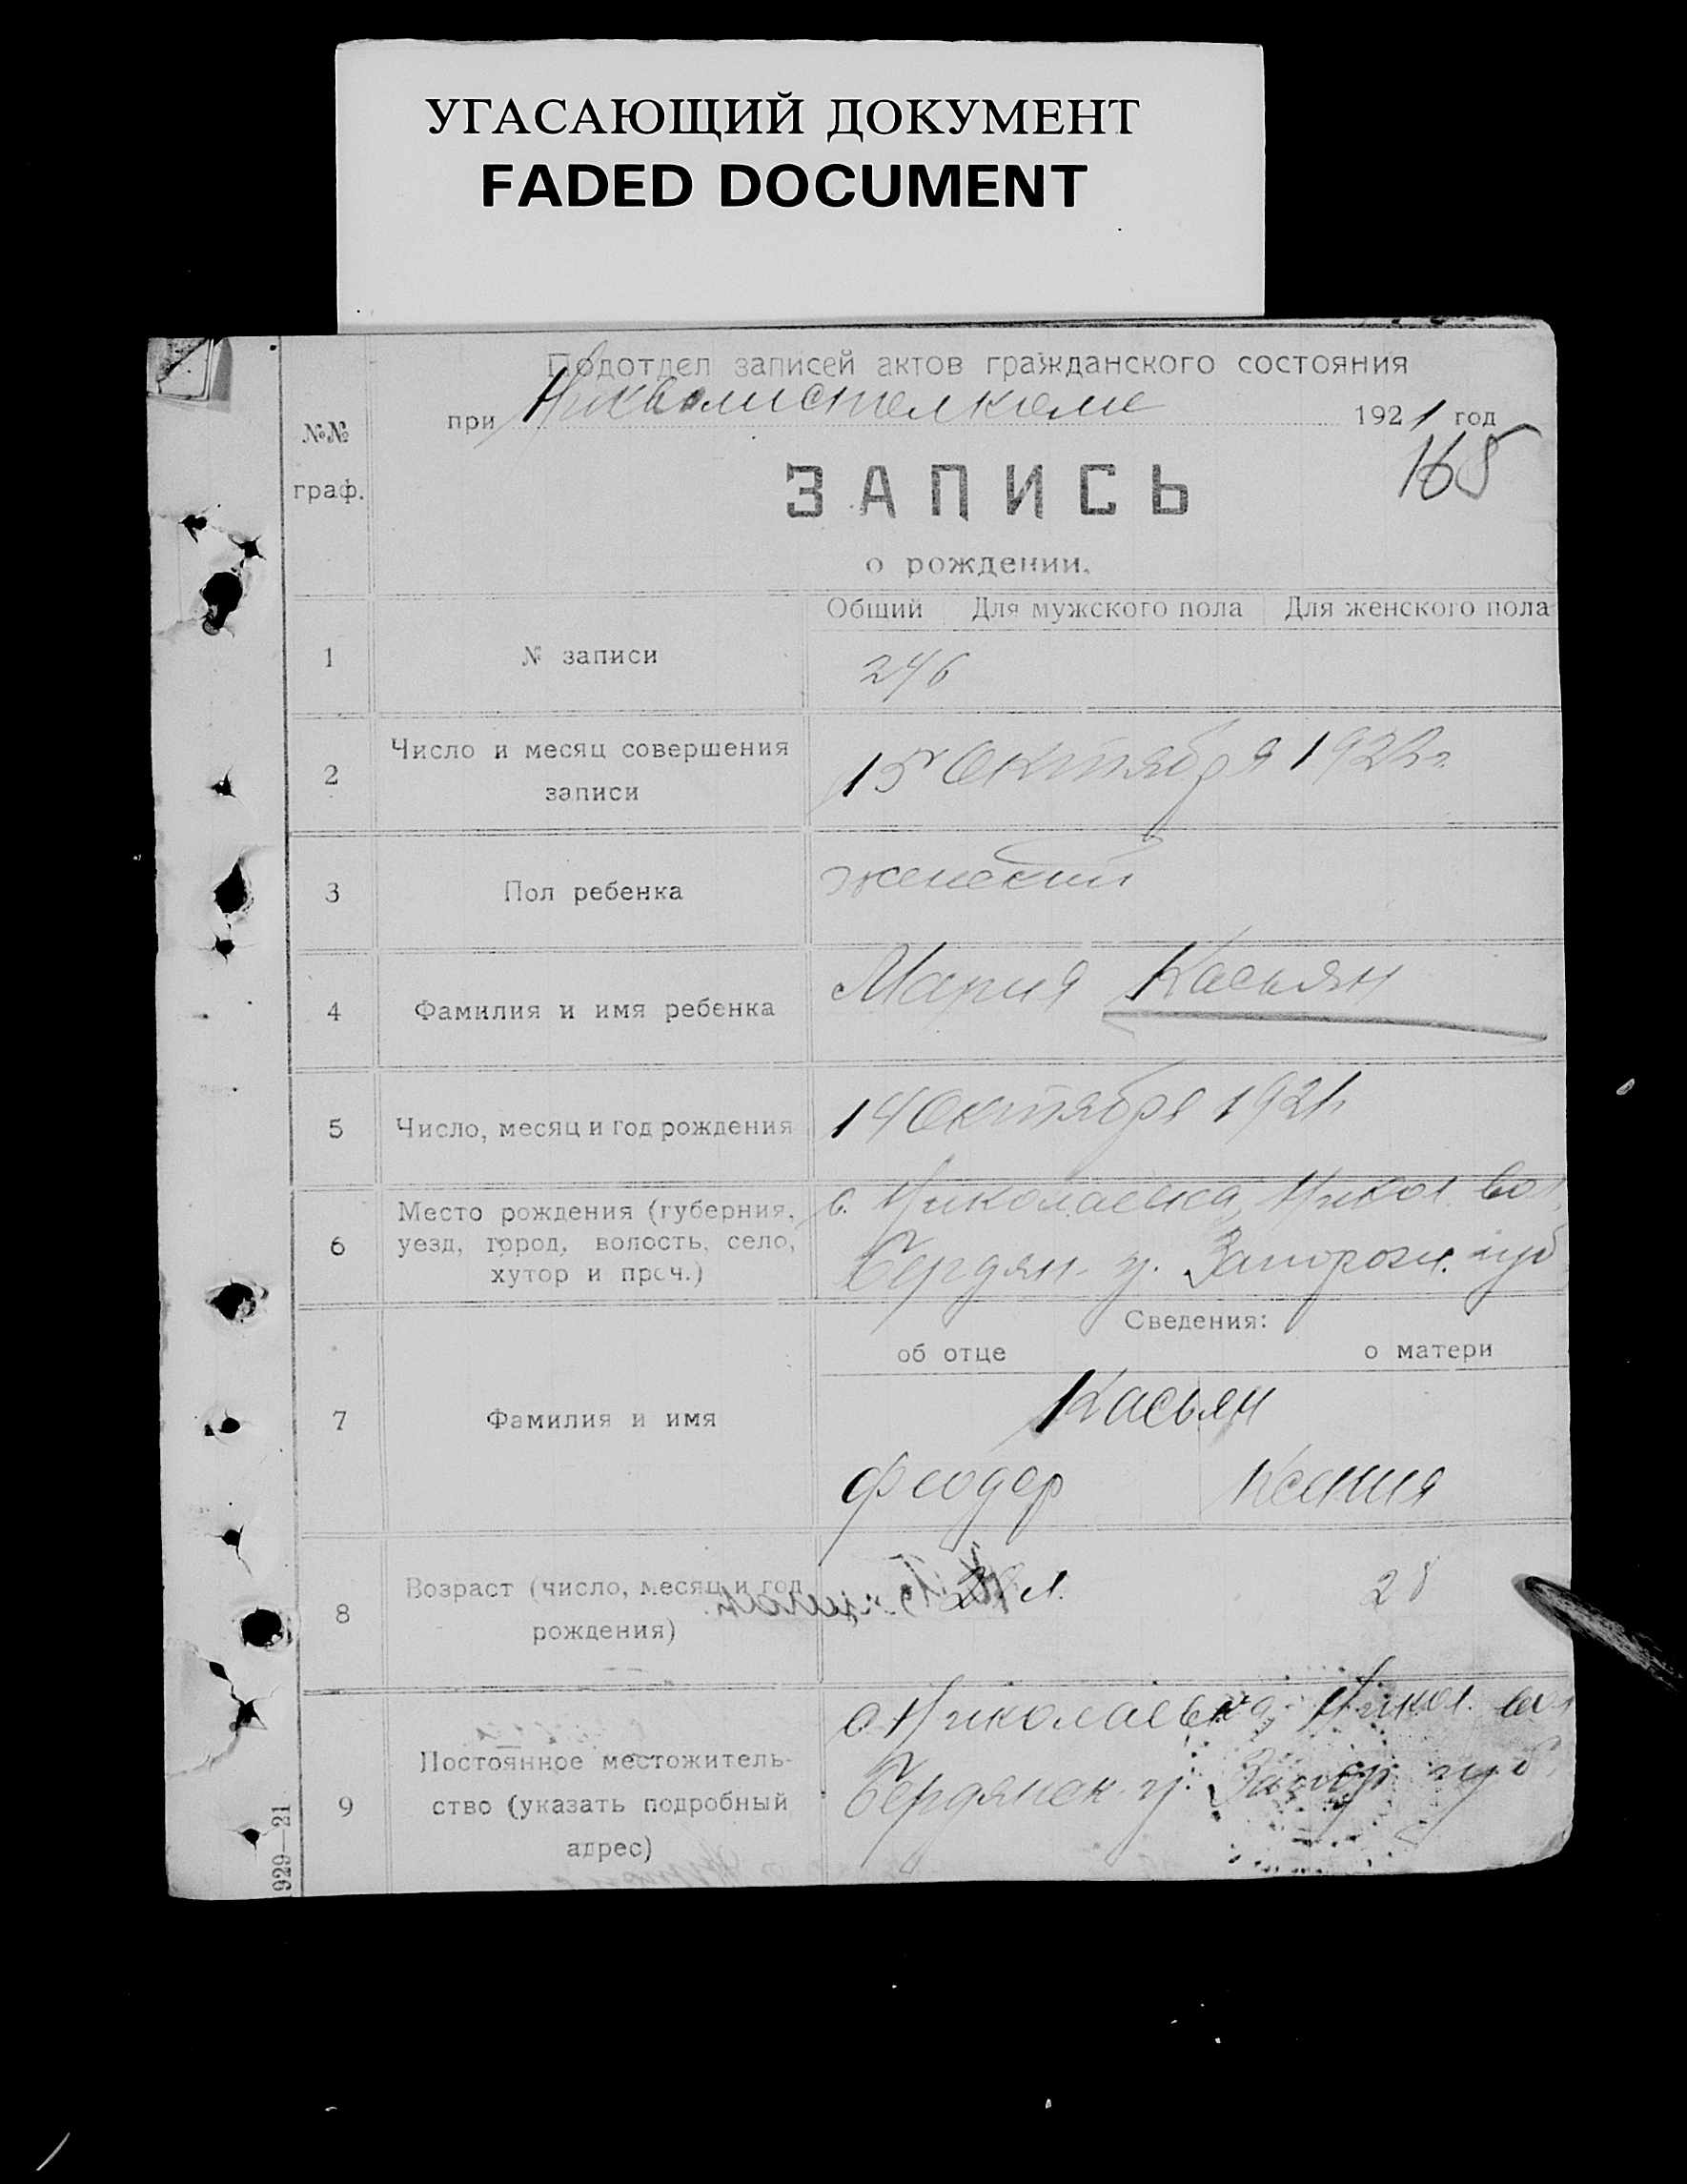 УГАСАЮЩИЙ ДОКУМЕНТ
FADED DOCUMENT
Подотдел записей актов гражданского состояния
при 1921 год
№№
граф.
168
ЗАПИСЬ
о рождении.
Общий Для мужского пола Для женского пола
1 № записи 246
2 Число и месяц совершения
записи
15 Октября 1922 г
3 Пол ребенка женский
4 Фамилия и имя ребенка Мария Касьян
5 Число, месяц и год рождения 14 Октября 1921
6 Место рождения (губерния,
уезд, город, волость, село,
хутор и проч.)
с. Николаевка, Никол. вол.
Бердян. у. Запорож. губ
Сведения:
об отце о матери
7 Фамилия и имя
Касьян
Феодор Ксения
8 Возраст (число, месяц и год
рождения)
л. 28
9 Постоянное местожитель-
ство (указать подробный
адрес)
с. Николаевка, Никол. вол
Бердянск. у. Запор губ.
929—21